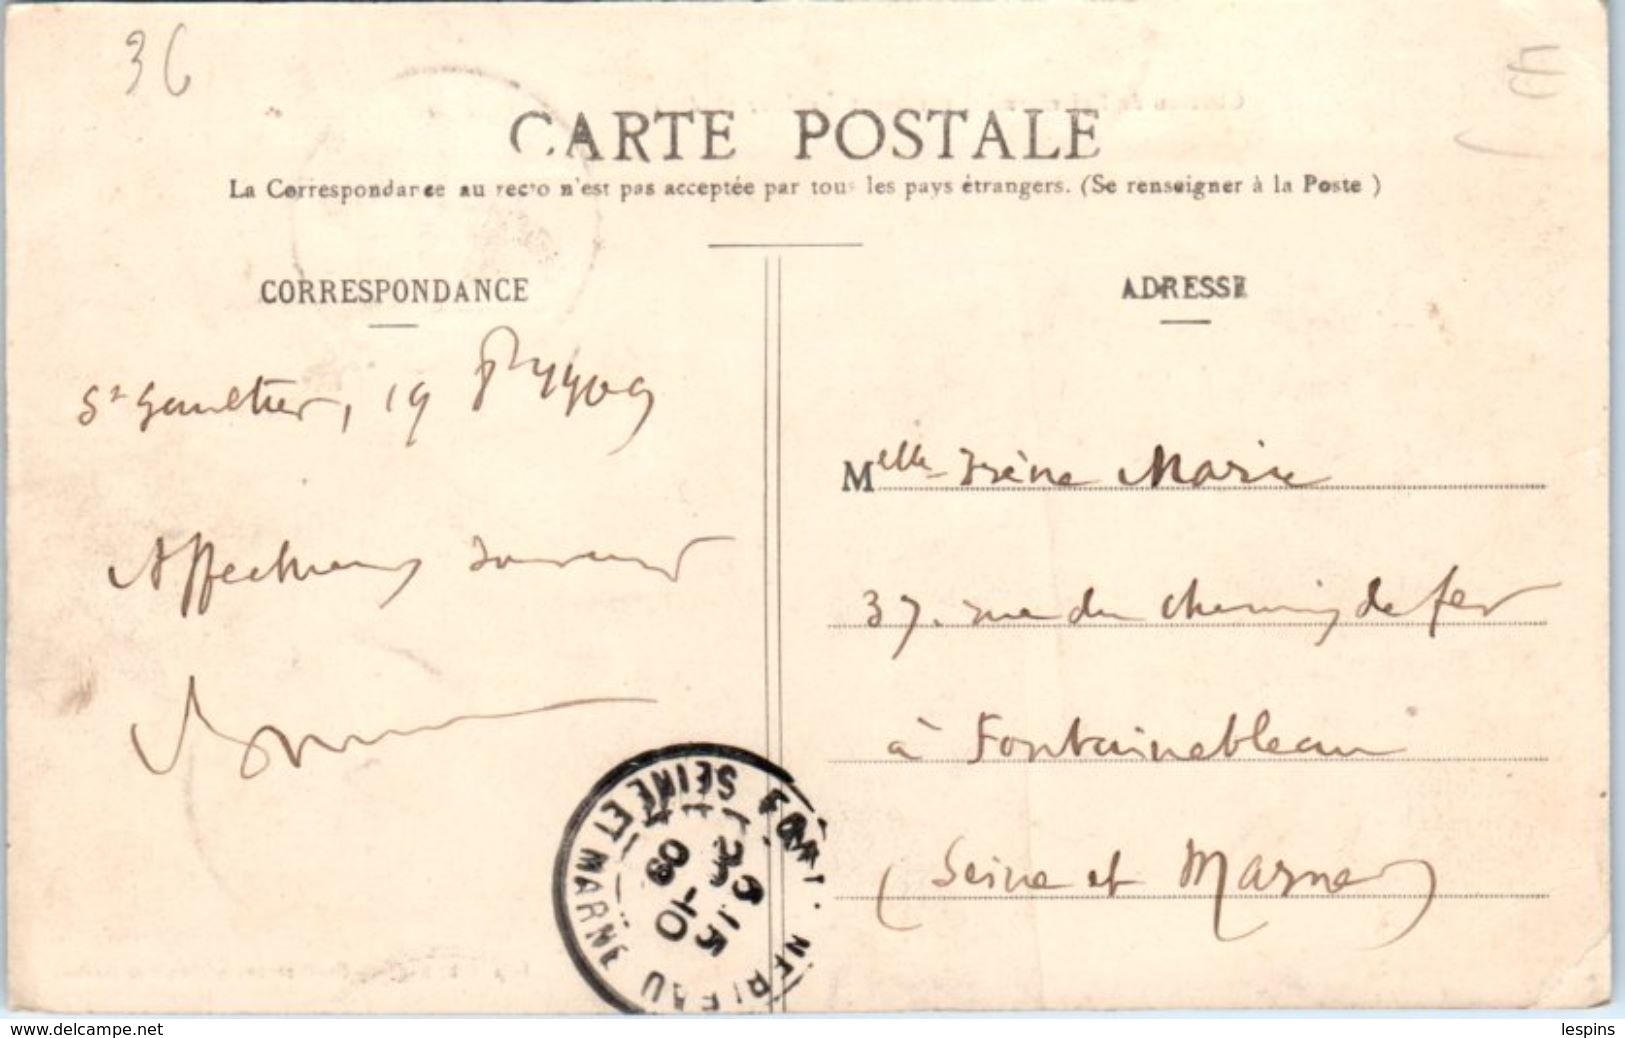 36
CARTE POSTALE
La Correspondance au recto n'est pas acceptée par tous les pays étrangers. (Se renseigner à la Poste)
CORRESPONDANCE
St Gaultier, 19 8bre 1909
Affectueux souvenir
ADRESSE
Melle Irène Marie
37. rue du Chemin de fer
à Fontainebleau
(Seine et Marne)
FONTAINEBLEAU
SEINE ET MARNE
www.delcampe.net
lespins